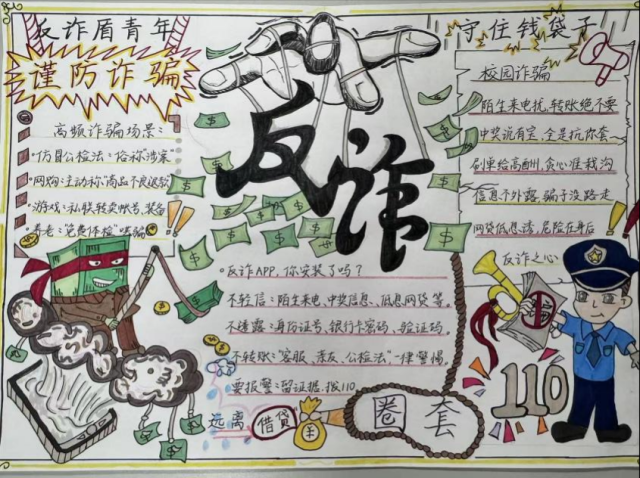 反诈盾青年
谨防诈骗
高频诈骗场景:
·仿冒公检法:俗称"涉案
·网购:主动称"商品不良退款
·游戏:私联转卖账号,装备
·养老:"免费体检"哄骗
反诈
守住钱袋子
校园诈骗
陌生来电扰,转账绝不要
中奖说有定,全是坑你套
刷单给高酬,贪心准栽沟
信息不外露,骗子没路走
网贷低息诱,危险在身后
反诈之心
反诈APP,你安装了吗?
不轻信:陌生来电、中奖信息、低息网贷等,
不透露:身份证号,银行卡密码,验证码,
不转账:"客服、亲友、公检法"一律警惕,
要报警:留证据,拨110
远离 借贷 圈套
110